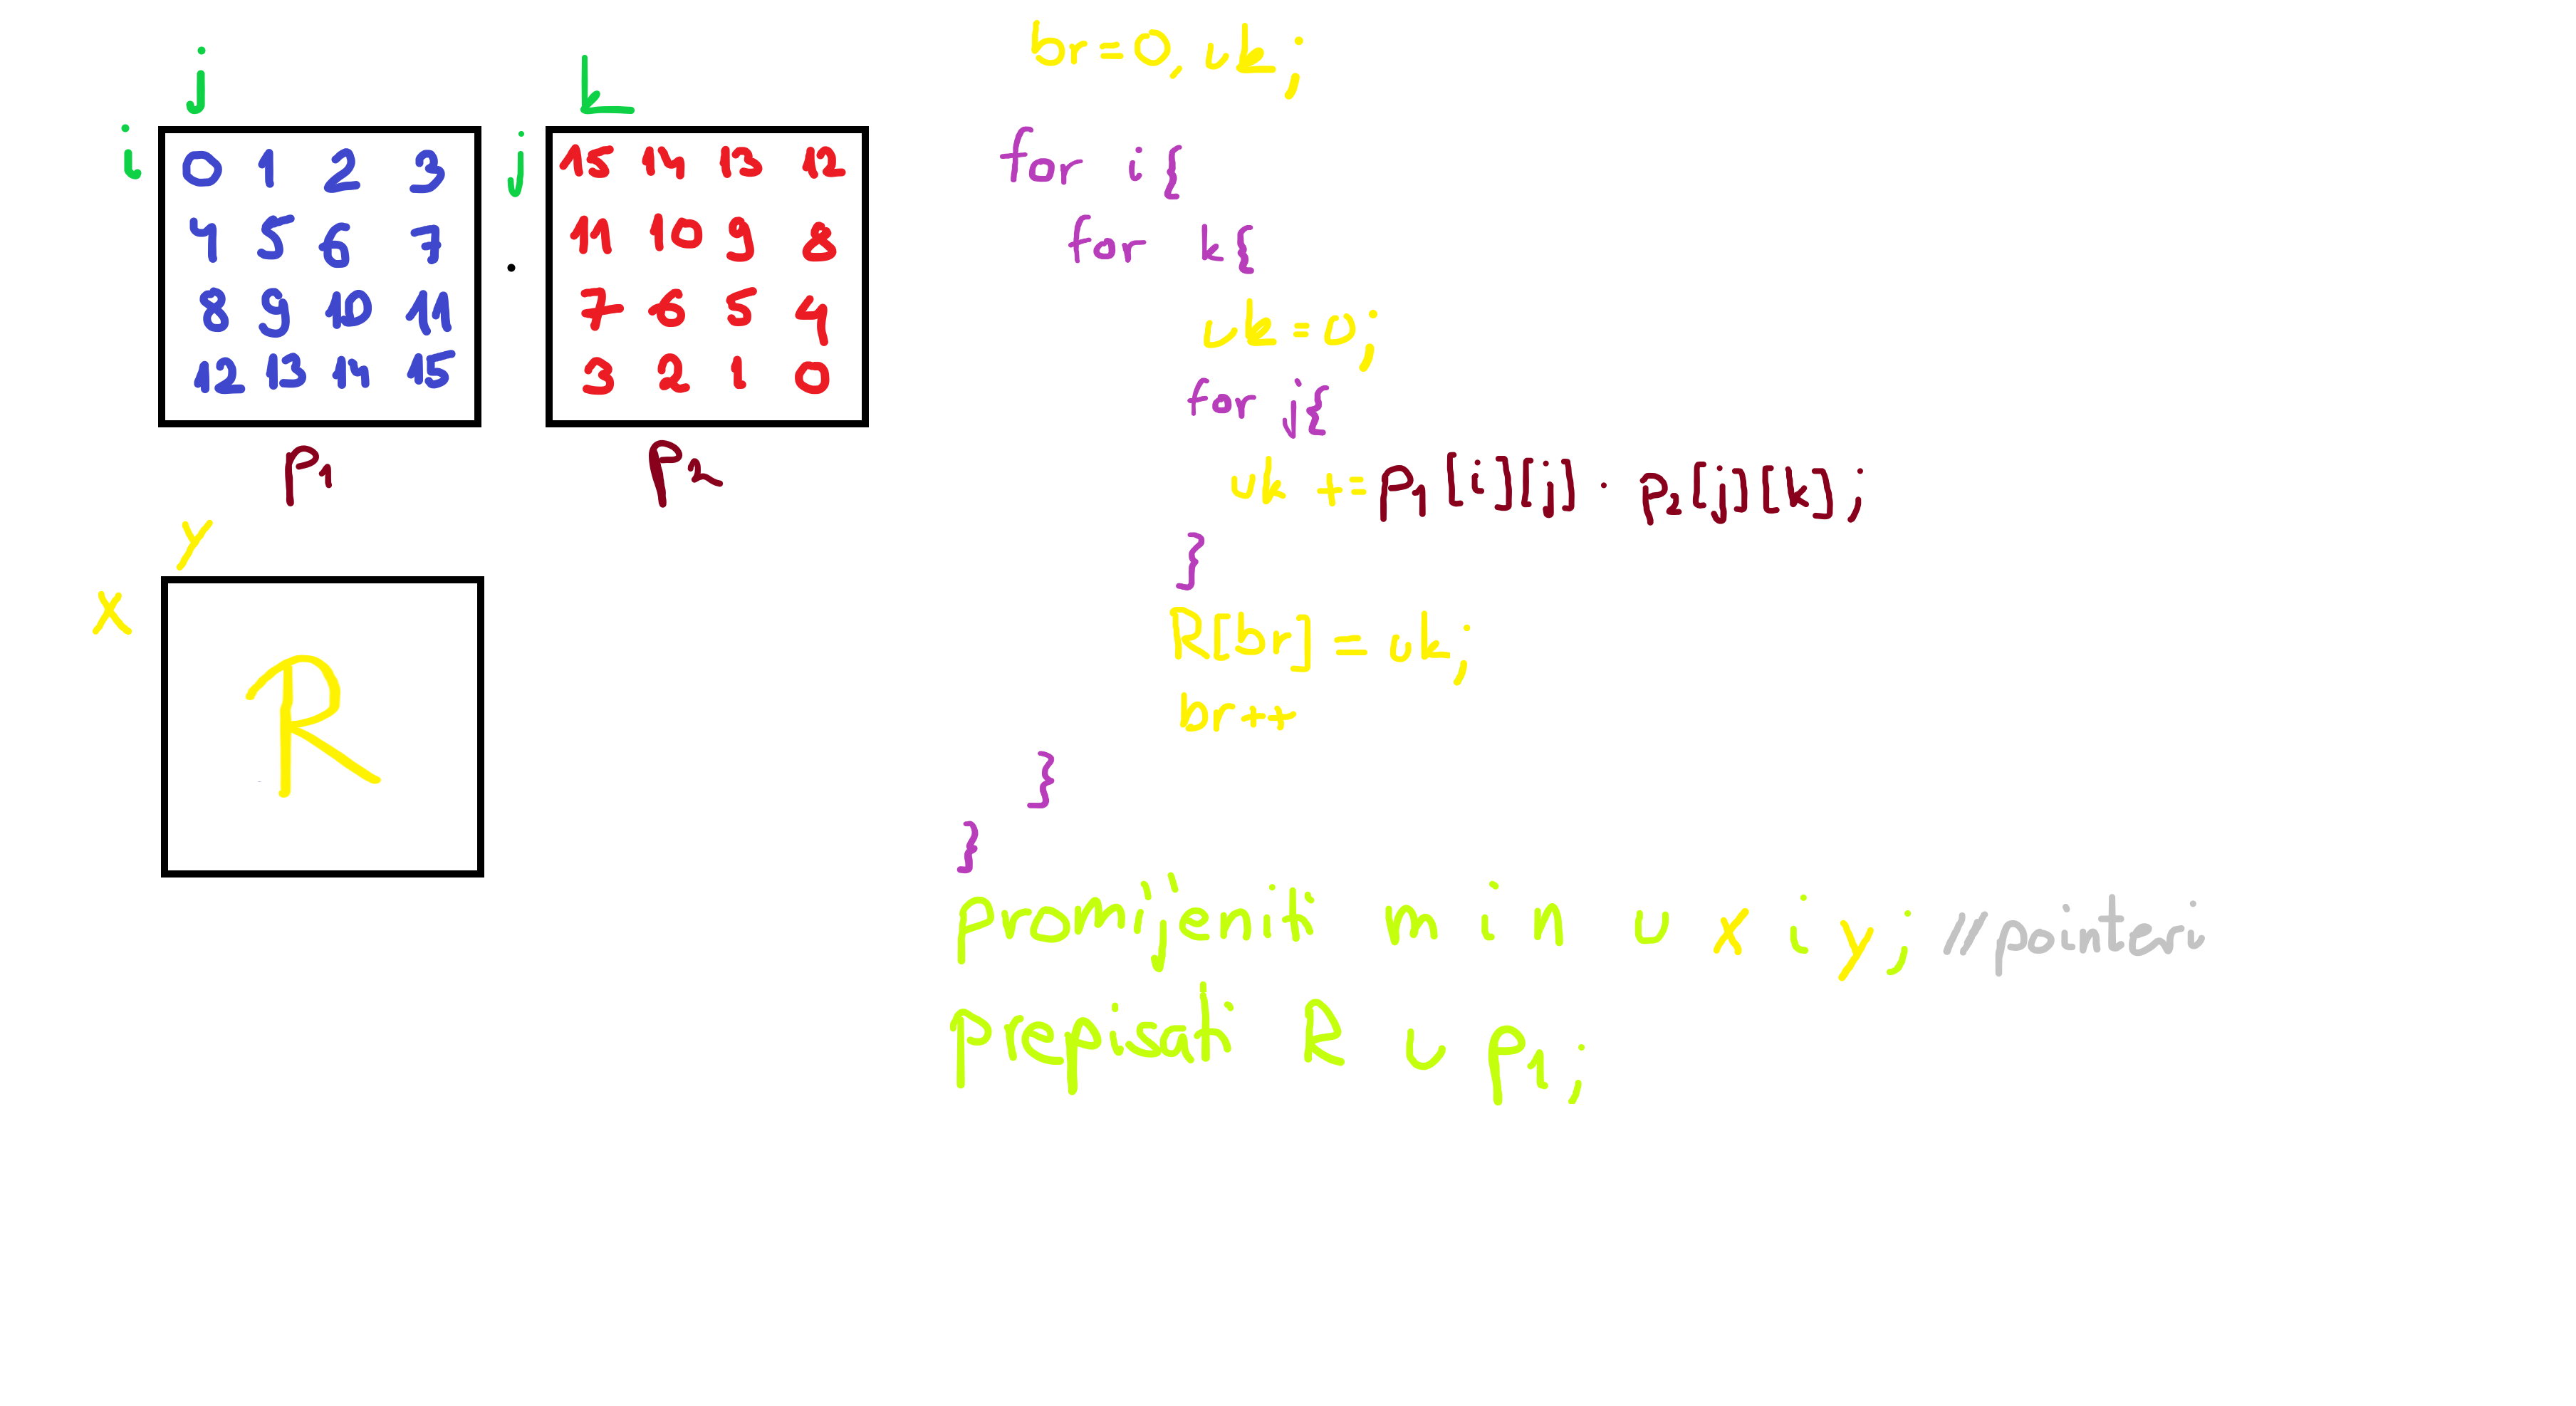 j
k
i
0 1 2 3
4 5 6 7
8 9 10 11
12 13 14 15
p1
.
j
15 14 13 12
11 10 9 8
7 6 5 4
3 2 1 0
p2
y
x
R
br=0, uk;
for i{
for k{
uk=0;
for j{
uk += p1[i][j] · p2[j][k];
}
R[br] = uk;
br++
}
}
promijeniti m i n u x i y; //pointeri
prepisati R u p1;